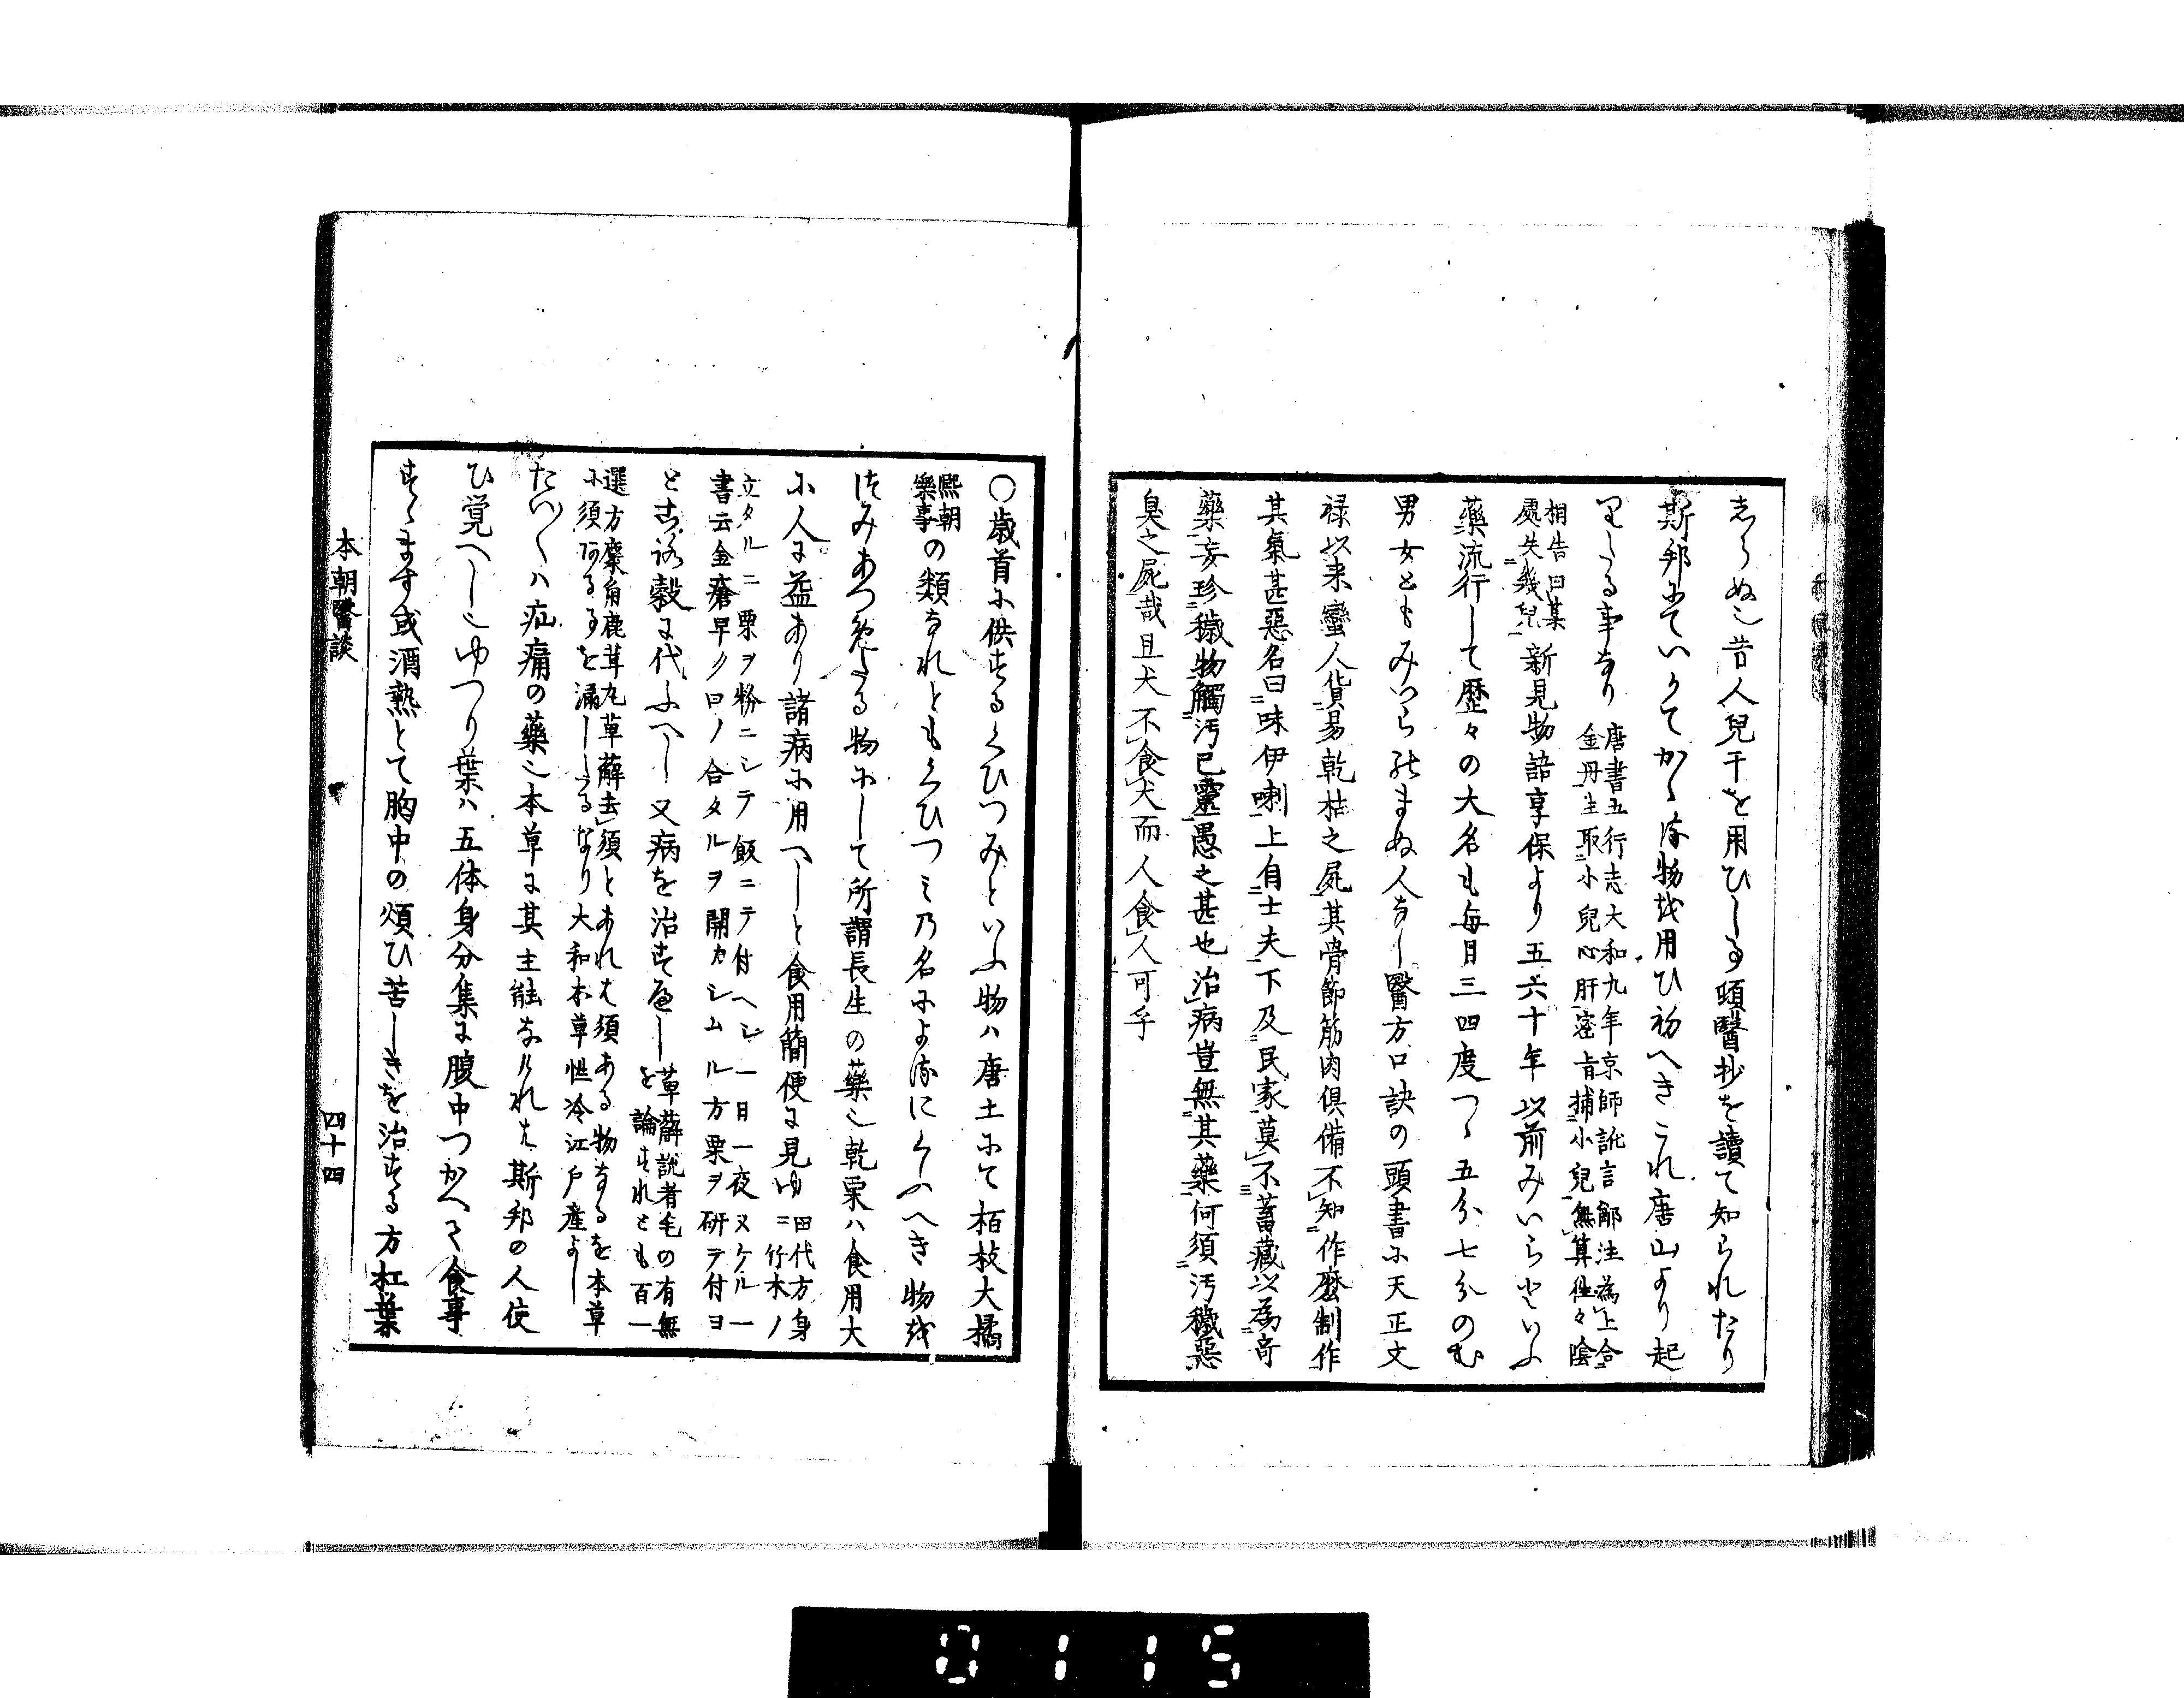 志らぬ也昔人兒干を用ひし事頤醫抄を讀て知られたり
斯邦にていかてかゝる物越用ひ初へきこれ唐山より起
里たる事なり
唐書五行志大和九年京師訛言鄭注為上合
金丹主取小兒心肝密旨捕小兒無算往々陰
相告曰某
處失幾兒
新見物語享保より五六十年以前みいらといふ
藥流行して歴々の大名も毎日三四度つゝ五分七分のむ
男女ともみいらのまぬ人なし醫方口訣の頭書に天正文
禄以来蠻人貨易乾枯之屍其骨節筋肉俱備不知作麼制作
其氣甚惡名曰味伊喇上自士夫下及民家莫不蓄藏以為奇
藥妄珍穢物觸汚己靈愚之甚也治病豈無其藥何須汚穢惡
臭之屍哉且犬不食犬而人食人可乎
〇歳首に供するくひつみといふ物ハ唐土にて栢枝大橘
熙朝
樂事
の類なれともくひつミ乃名によるにくふへき物越
つみあつめたる物にして所謂長生の藥也乾栗ハ食用大
に人に益あり諸病に用へしと食用簡便に見ゆ
田代方身
ニ竹木ノ
立タルニ栗ヲ粉ニシテ飯ニテ付ヘシ一日一夜ヌケル一
書云金瘡早ク口ノ合タルヲ開カシムル方栗ヲ研テ付ヨ
ところ穀に代ふへし又病を治すへし
草薢說者毛の有無
を論すれとも百一
選方麋角鹿茸丸草薢去須とあれは須ある物なるを本草
に須ある事を漏したるなり大和本草性冷江戸産よし
たいハ疝痛の藥也本草に其主能なけれは斯邦の人使
ひ覚へし也ゆつり葉ハ五体身分集に腹中つかへて食事
すゝます或酒熱とて胸中の煩ひ苦しきを治する方杠葉
本朝醫談
四十四
0115